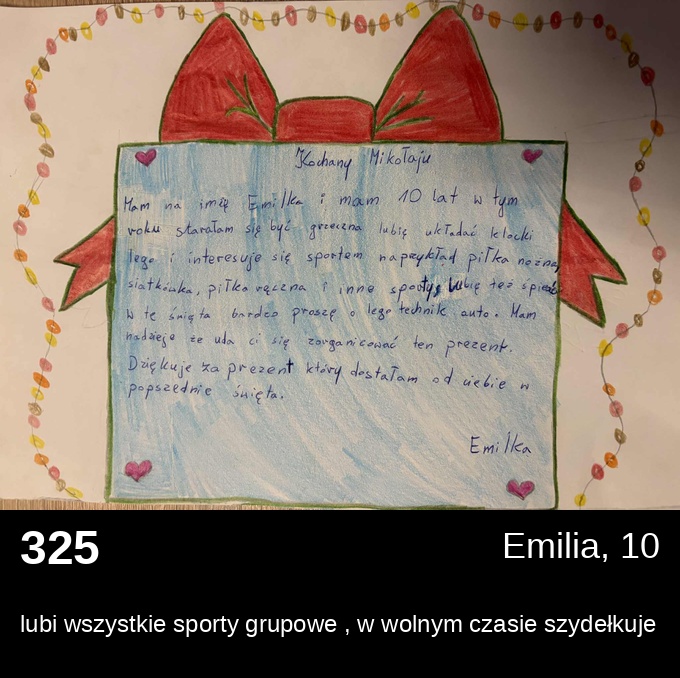 Kochany Mikołaju
Mam na imię Emilka i mam 10 lat w tym
roku starałam się być grzeczna lubię układać klocki
lego i interesuje się sportem naprzykład piłka nożna,
siatkówka, piłka ręczna i inne sporty, lubię też śpiewać
w te święta bardzo proszę o lego technik auto. Mam
nadzieje że uda ci się zorganizować ten prezent.
Dziękuje za prezent który dostałam od ciebie w
popszednie święta.
Emilka
325
Emilia, 10
lubi wszystkie sporty grupowe , w wolnym czasie szydełkuje